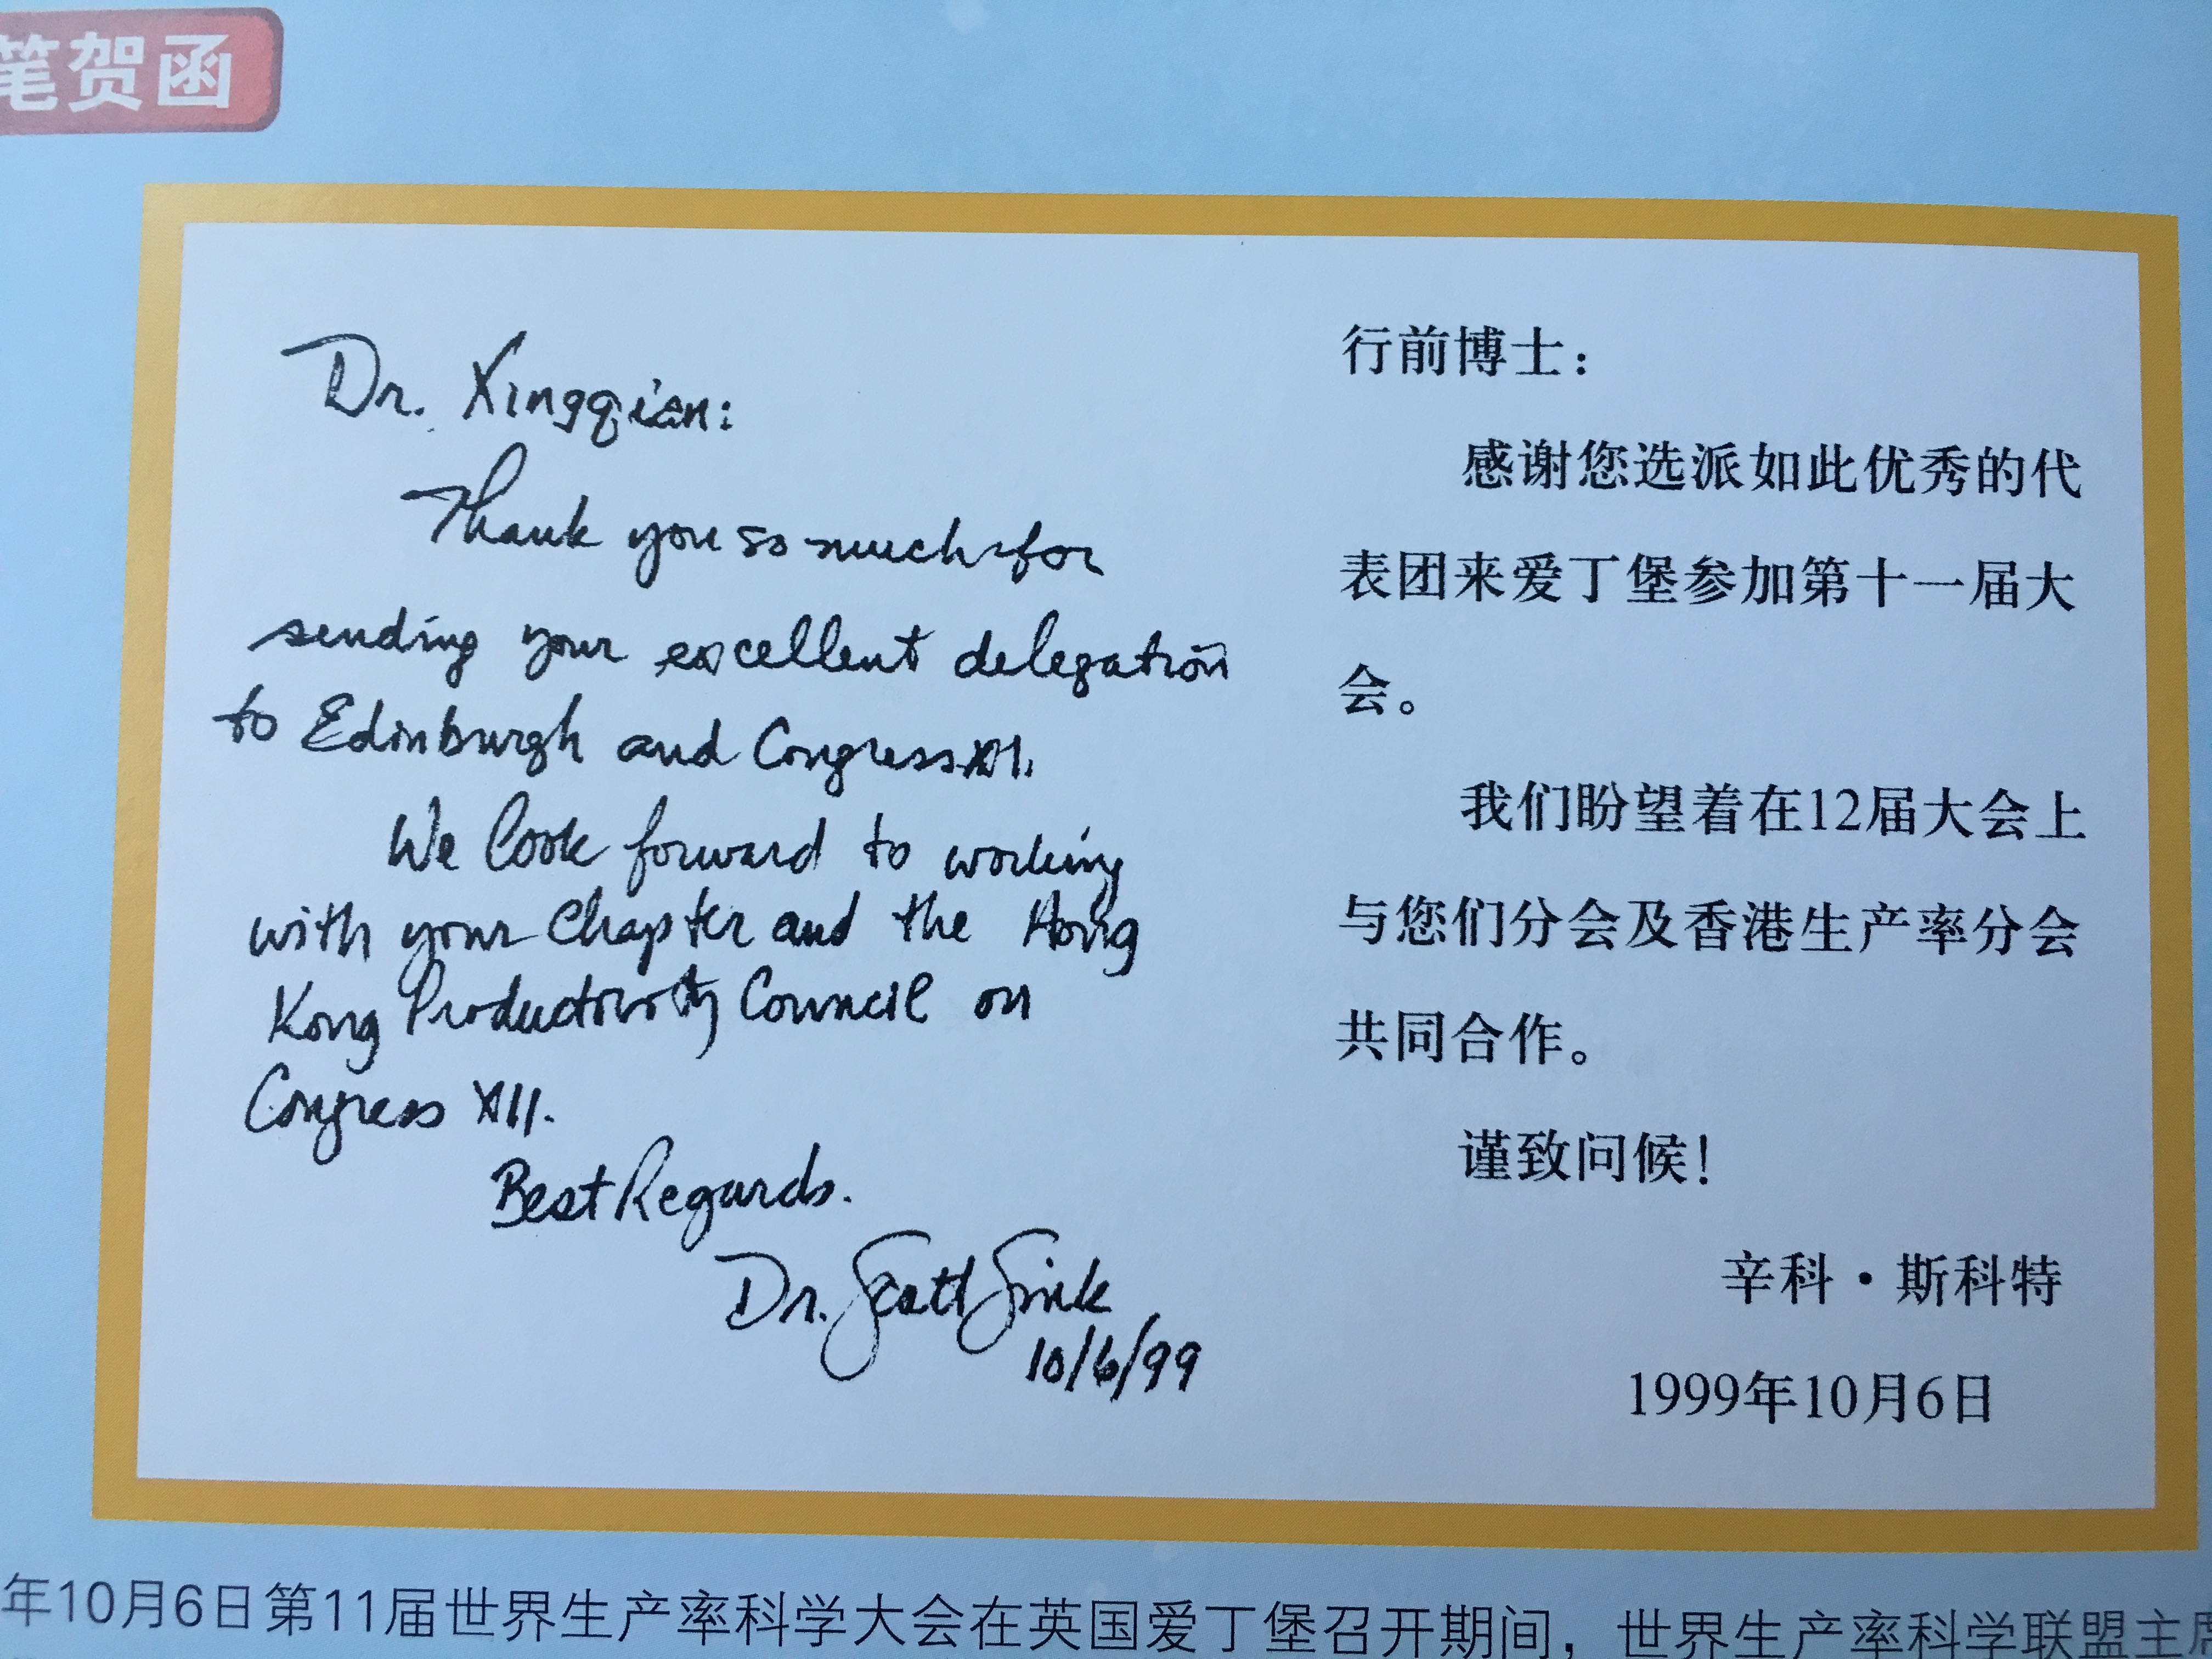 笔贺函
Dr. Xingqian:
Thank you so much for
sending your excellent delegation
to Edinburgh and Congress XI.
We look forward to working
with your Chapter and the Hong
Kong Productivity Council on
Congress XII.
Best Regards.
Dr. Scott Sink
10/6/99
行前博士：
感谢您选派如此优秀的代
表团来爱丁堡参加第十一届大
会。
我们盼望着在12届大会上
与您们分会及香港生产率分会
共同合作。
谨致问候！
辛科·斯科特
1999年10月6日
年10月6日第11届世界生产率科学大会在英国爱丁堡召开期间，世界生产率科学联盟主席